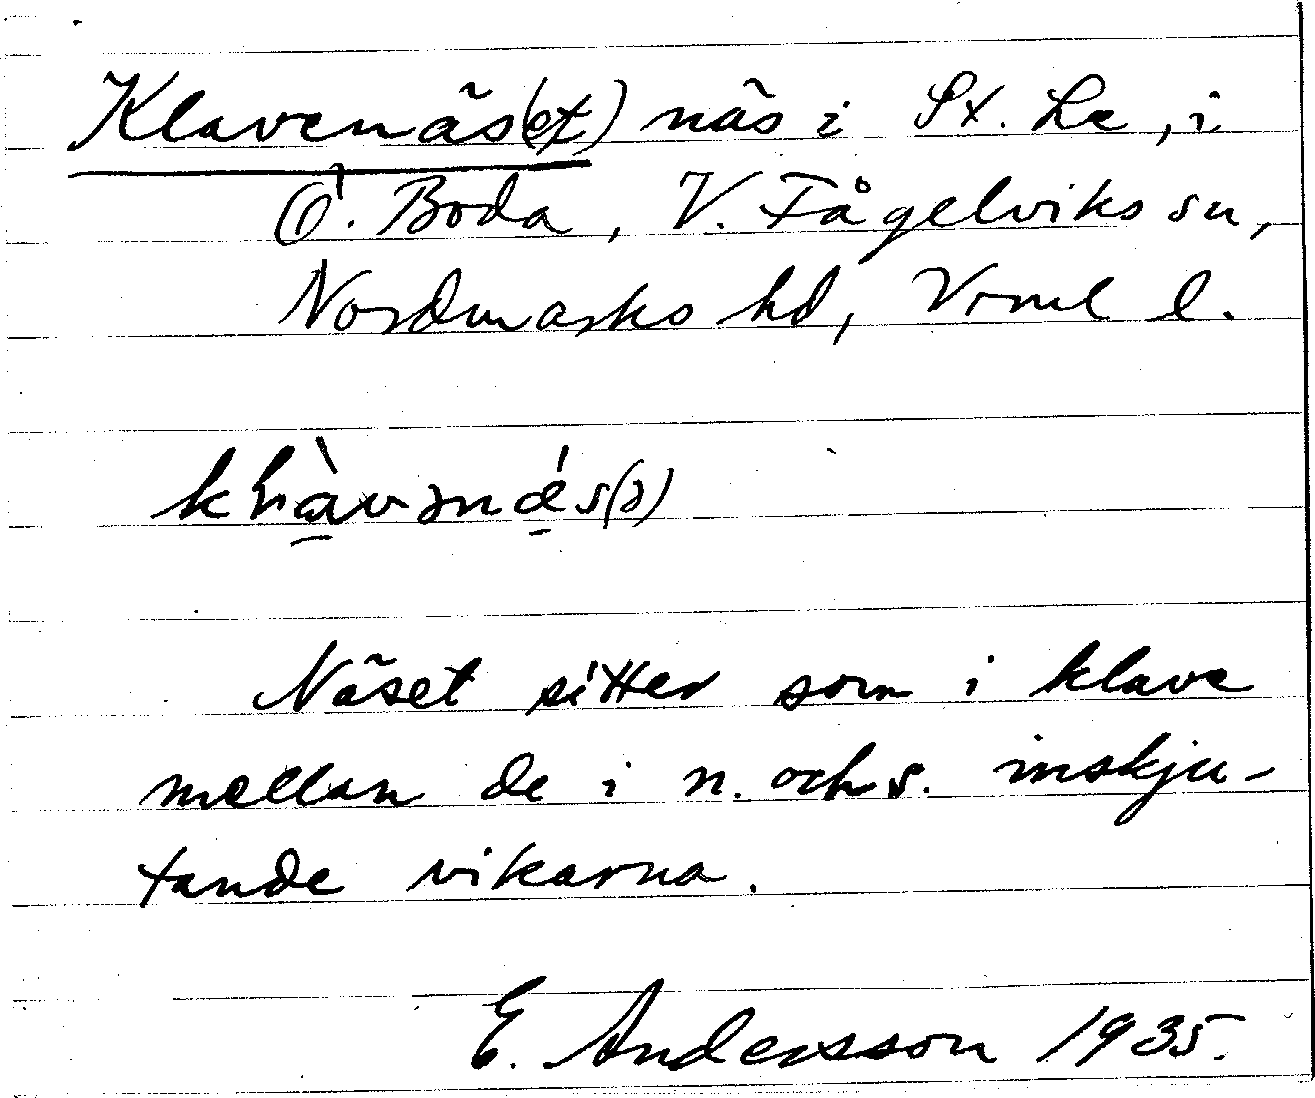 Klavenäs(et) näs i St. Le, i
Ö. Boda, V. Fågelviks sn,
Nordmarks hd, Vrml l.
Näset sitter som i klave
mellan de i n. och s. inskju-
tande vikarna.
E. Andersson 1935.